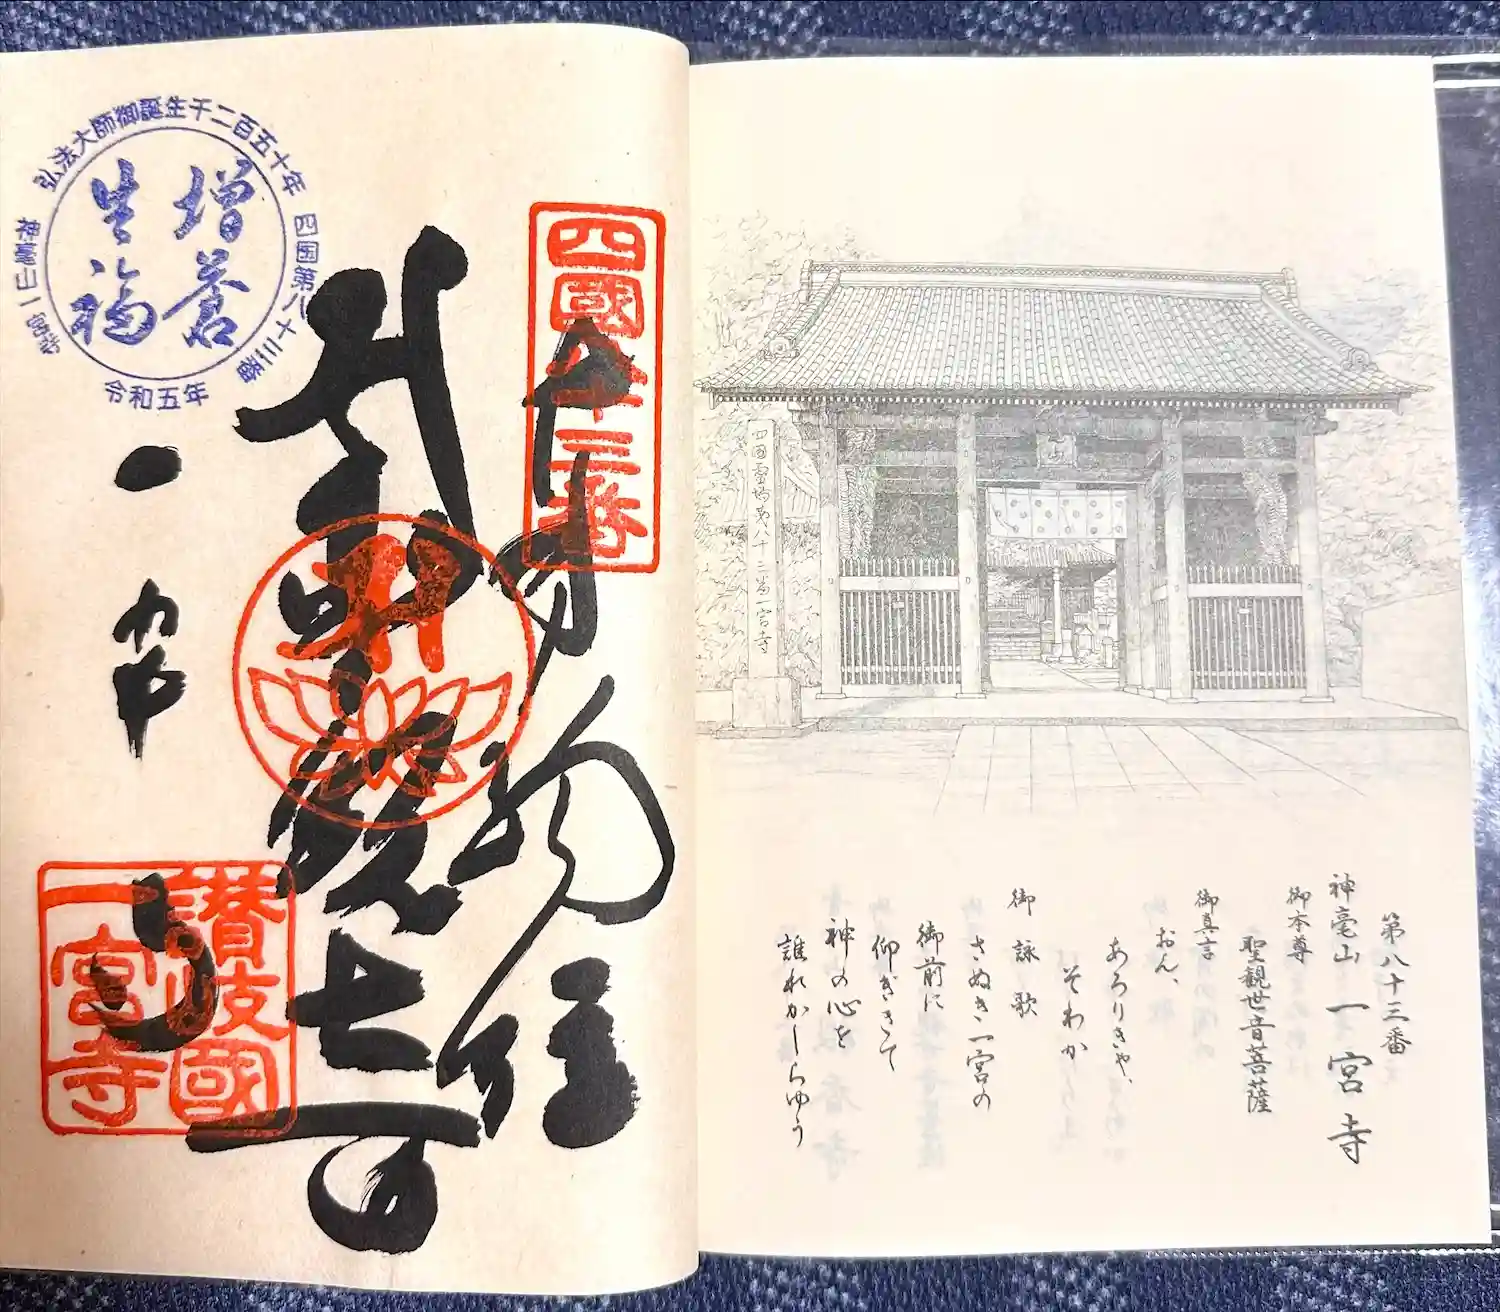 第八十三番
神毫山 一宮寺
御本尊
聖観世音菩薩
御真言
おん、
あろりきゃ、
そわか
御詠歌
さぬき一宮の
御前に
仰ぎきて
神の心を
誰れかしらゆう
四国霊場第八十三番一宮寺
四國八十三番
奉納経
弘法大師御誕生千二百五十年
四国第八十三番
神毫山一宮寺
令和五年
増益
生福
一宮寺
讃岐國
一宮寺